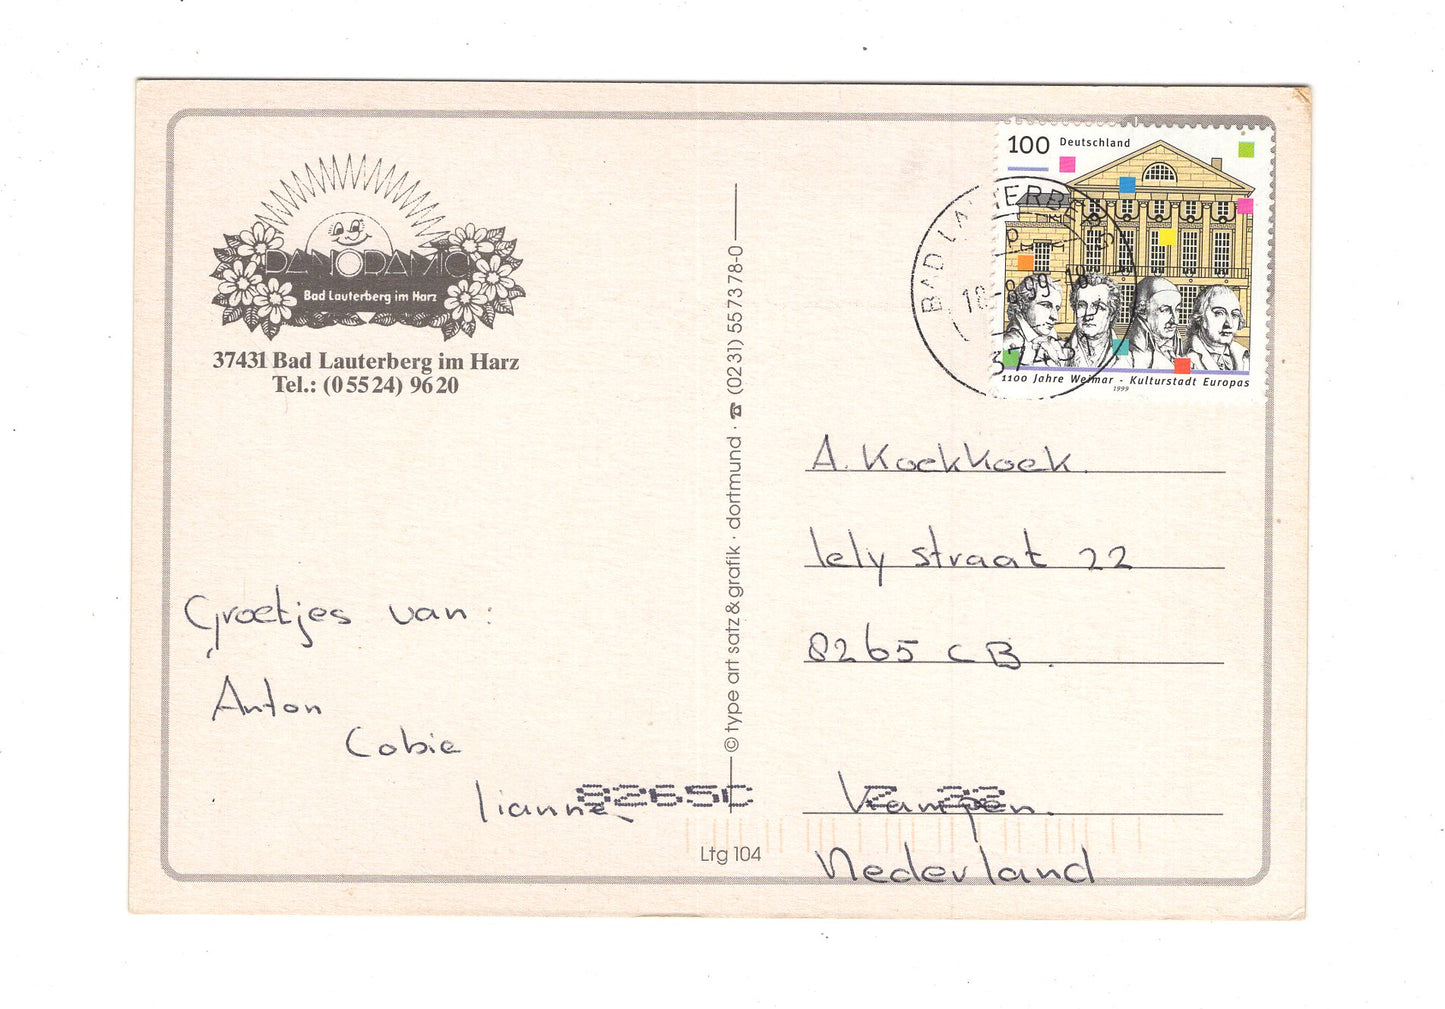 PANORAMIC
Bad Lauterberg im Harz
37431 Bad Lauterberg im Harz
Tel.: (0 55 24) 96 20
Groetjes van:
Anton
Cobie
Lianne
8265C
© type art satz & grafik · dortmund · ☎ (02 31) 55 73 78-0
Ltg 104
100 Deutschland
1100 Jahre Weimar - Kulturstadt Europas
1999
BAD LAUTERBERG
18-8.99-18
3743
A. Koekkoek.
lely straat 22
8265 CB.
Kampen.
22
Nederland